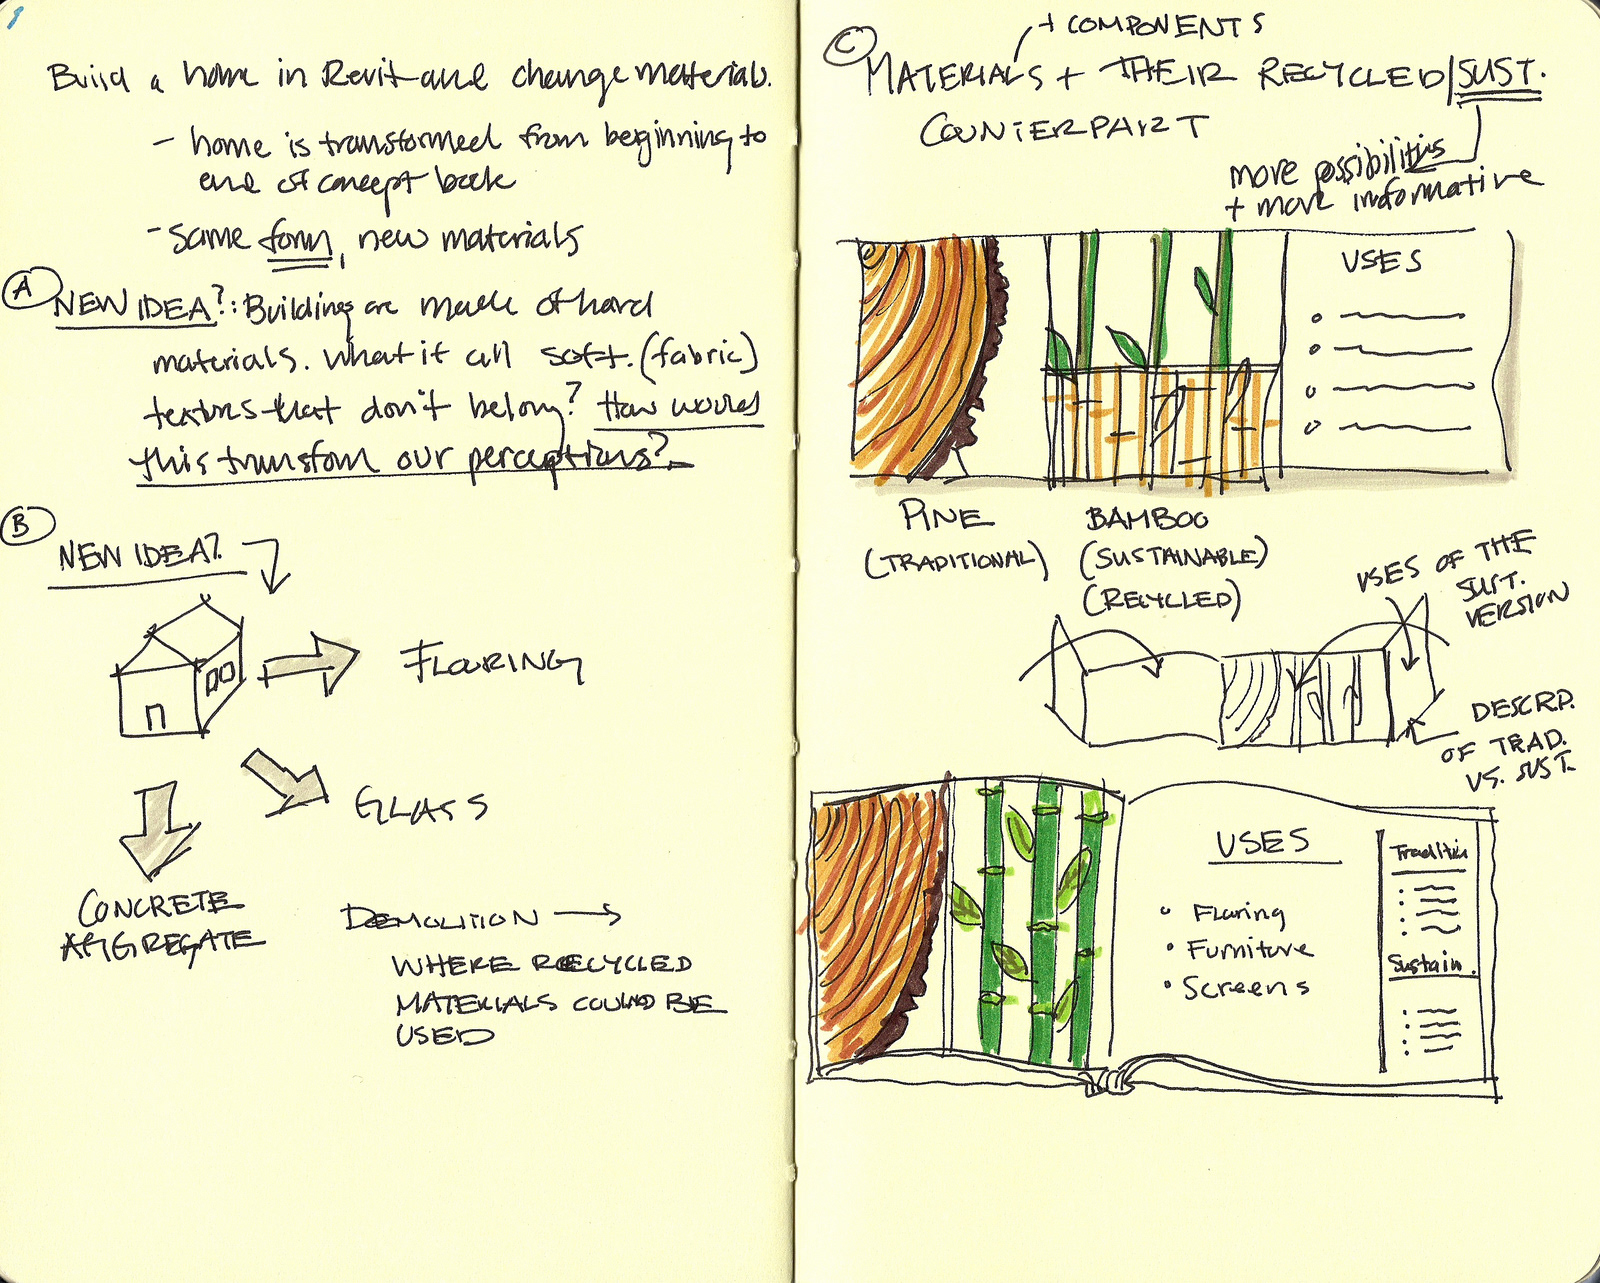 Build a home in Revit and change materials.
- home is transformed from beginning to
end of concept book
- same form, new materials
A NEW IDEA?: Buildings are made of hard
materials. What if all soft. (fabric)
textures that don't belong? How would
this transform our perceptions?
B
NEW IDEA?
FLOORING
GLASS
CONCRETE
AGGREGATE
DEMOLITION →
WHERE RECYCLED
MATERIALS COULD BE
USED
+ COMPONENTS
C MATERIALS + THEIR RECYCLED/SUST.
COUNTERPART
more possibilities
+ more informative
USES
PINE
(TRADITIONAL)
BAMBOO
(SUSTAINABLE)
(RECYCLED)
USES OF THE
SUST.
VERSION
DESCRP.
OF TRAD.
VS. SUST.
USES
• Flooring
• Furniture
• Screens
Tradition
Sustain.